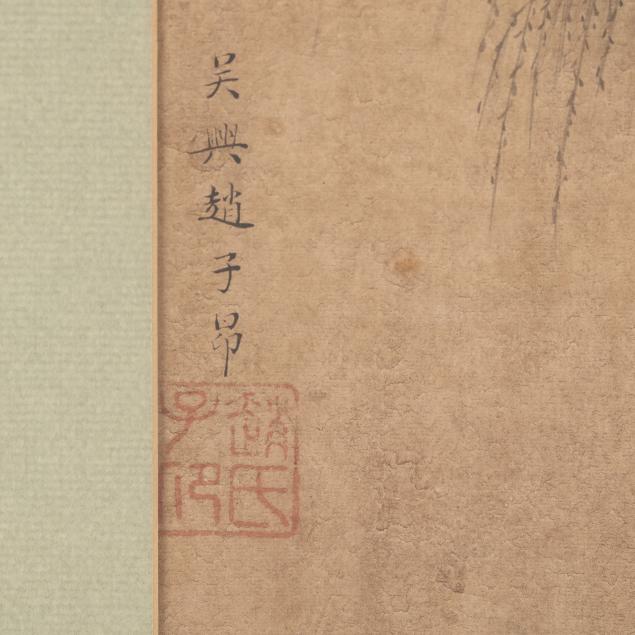 吴興趙子昂
趙氏
子卬